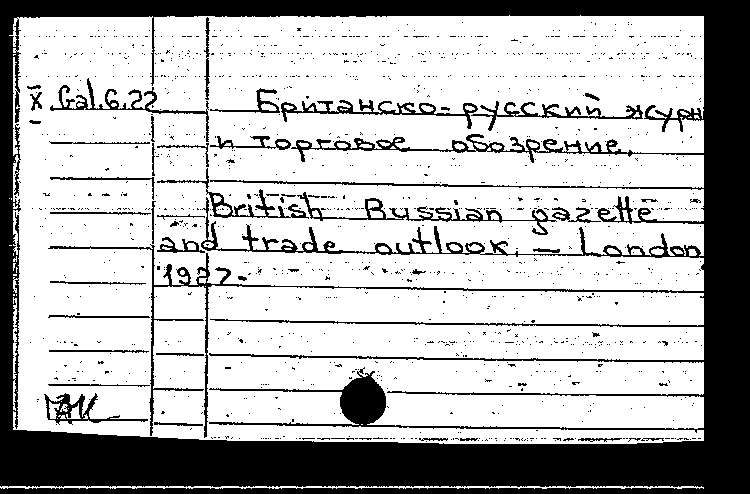 x Gal.6.22 Британско-русский журн
и торговое обозрение.
British Russian gazette
and trade outlook. — London
1927-